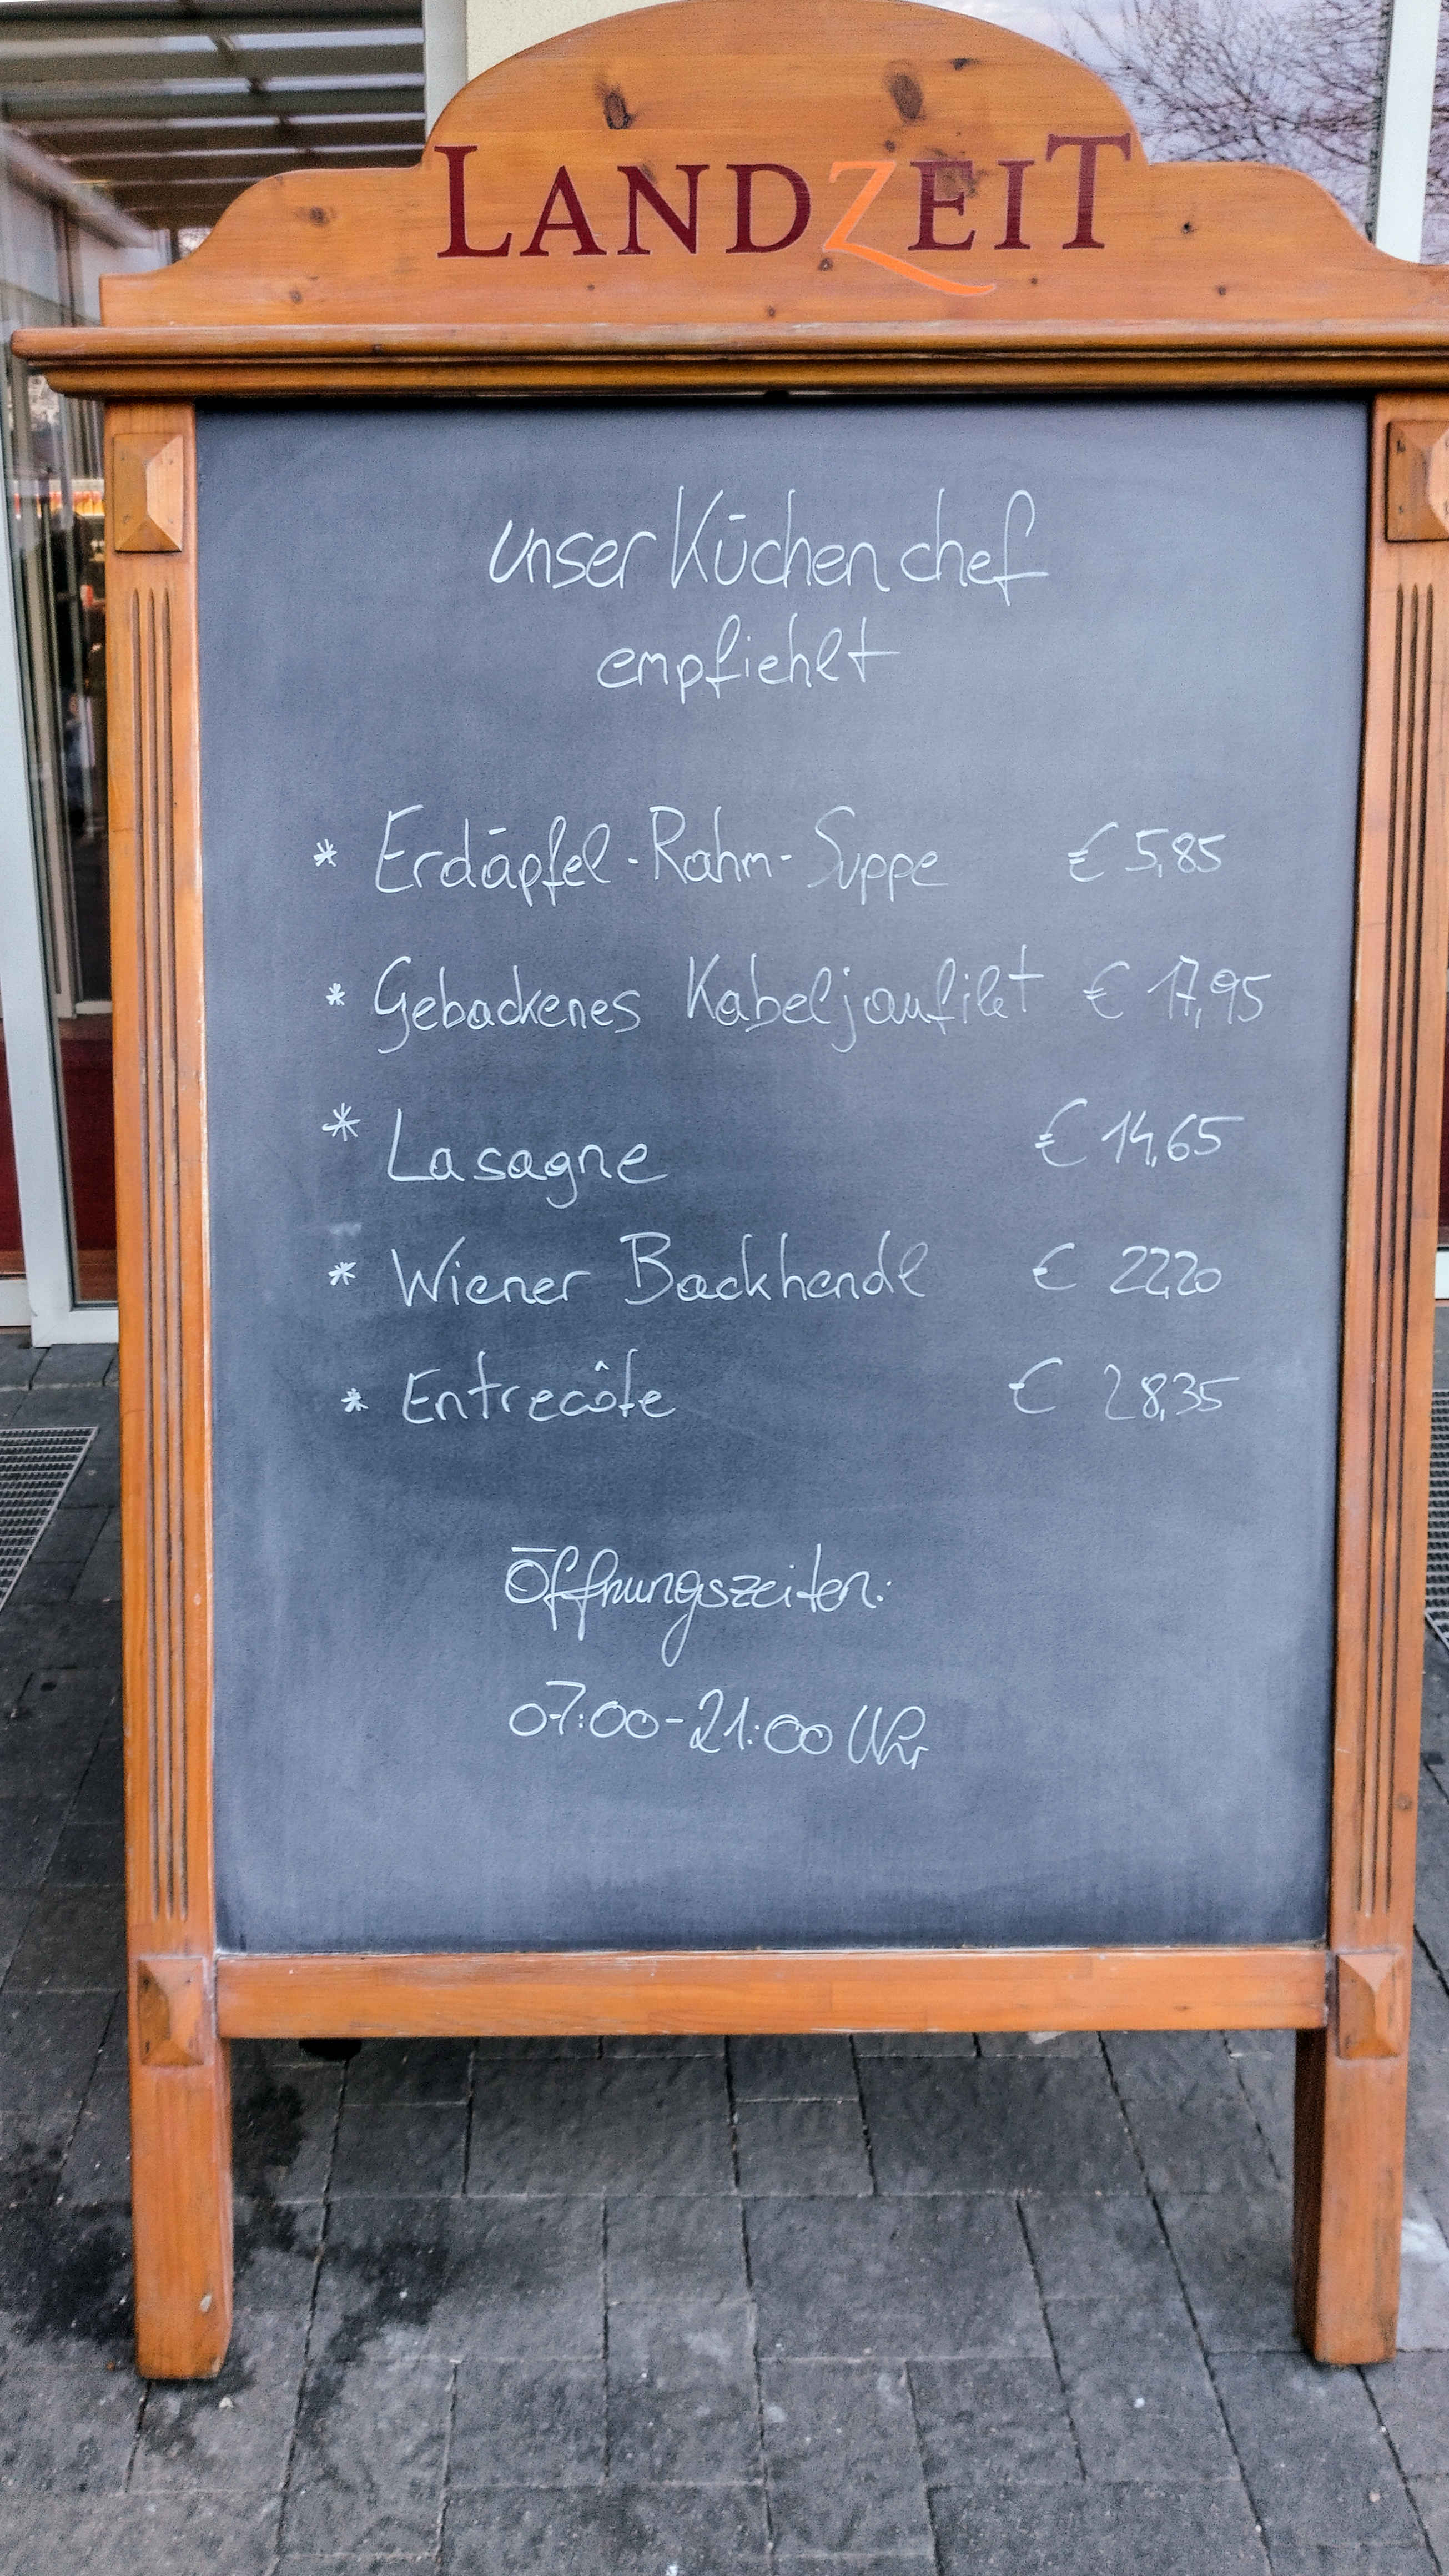 LANDZEIT
unser Küchenchef
empfiehlt
* Erdäpfel-Rahm-Suppe € 5,85
* Gebackenes Kabeljaufilet € 17,95
* Lasagne € 14,65
* Wiener Backhendl € 22,20
* Entrecôte € 28,35
Öffnungszeiten:
07:00-21:00 Uhr